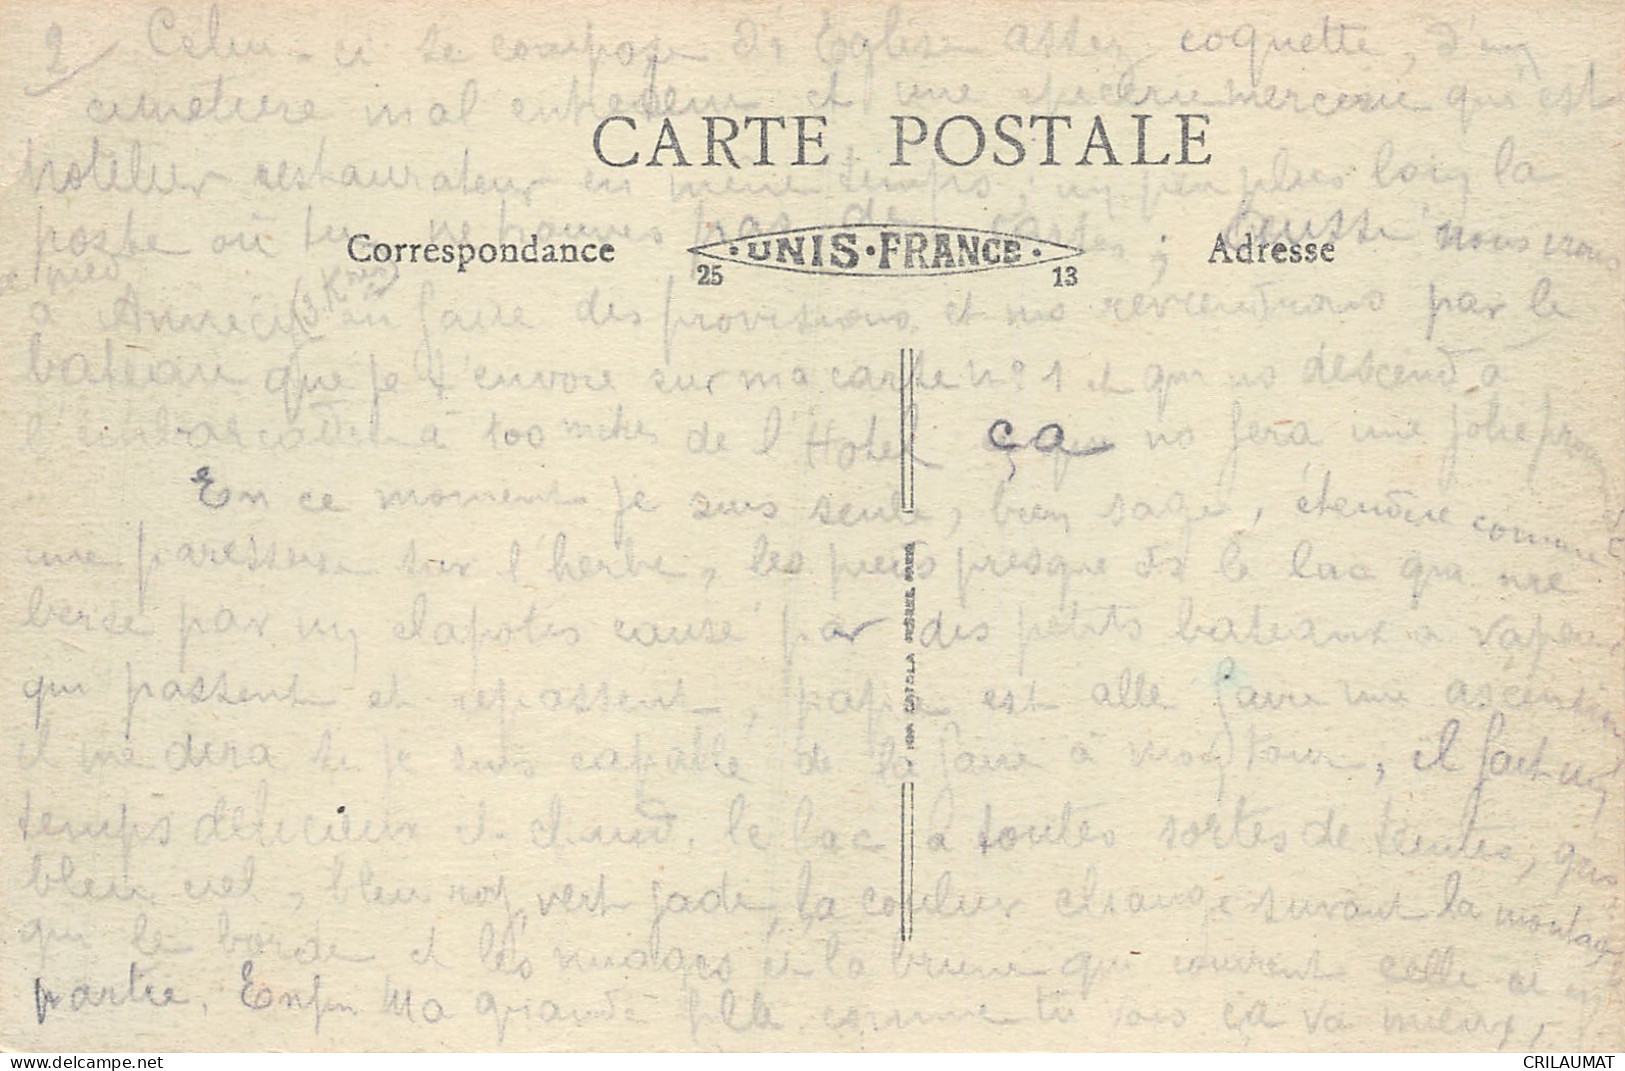 2 Celui-ci se compose d'1 Eglise assez coquette, d'un
cimetière mal entretenu et une épicerie mercerie qui est
CARTE POSTALE
hotelier restaurateur en meme temps, un peu plus loin la
poste où tu ne trouves pas de cartes ; aussi nous irons
Correspondance
UNIS-FRANCE
25 13
Adresse
pied
à Annecy (3 Kms) en faire des provisions et ns reviendrons par le
bateau que je t'envoie sur ma carte n° 1 et qui ns descend à
l'embarcadère à 100 mètres de l'Hotel ça ns fera une jolie promenade
En ce moment je suis seule, bien sage, étendue comme
une paresseuse sur l'herbe, les pieds presque ds le lac qui me
berce par un clapotis causé par des petits bateaux à vapeur
qui passent et repassent, papa est allé faire une ascension
il me dira si je suis capable de la faire à mon tour, il fait un
temps délicieux et chaud. le lac a toutes sortes de teintes, gris
bleu ciel, bleu roy, vert jade, la couleur change suivant la montagne
qui le borde et les nuages et la brume qui couvrent celle ci en
partie. Enfin Ma grande fille comme tu vois ça va mieux,
CRILAUMAT